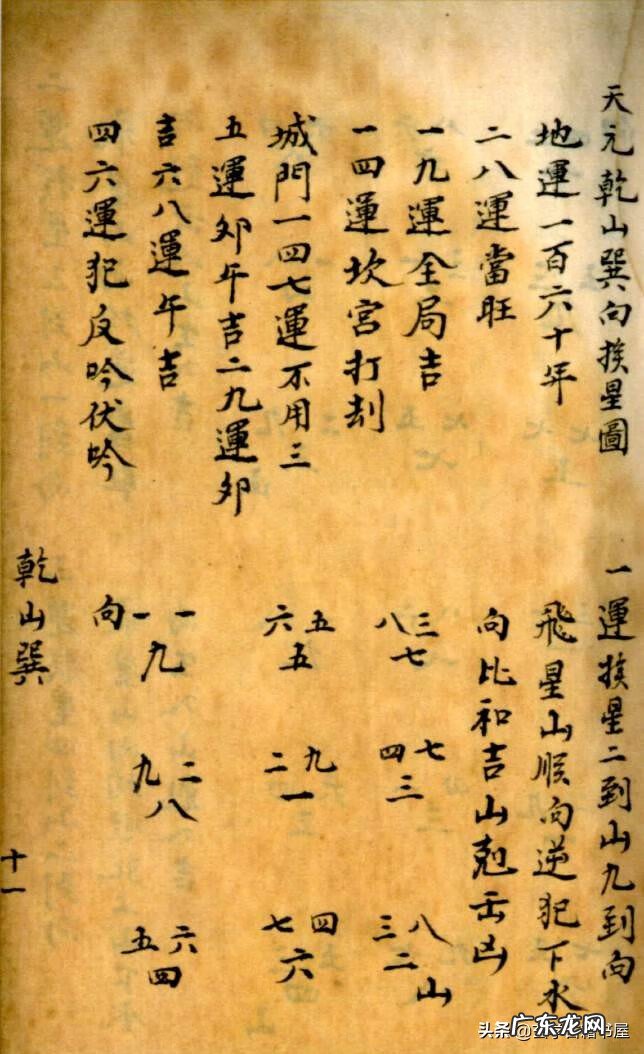 天元乾山巽向挨星圖
地運一百六十年
二八運當旺
一九運全局吉
一四運坎宮打刧
城門一四七運不用三
五運夘午吉二九運夘
吉六八運午吉
四六運犯反吟伏吟
一運挨星二到山九到向
飛星山順向逆犯下水
向比和吉山剋凶
三八 七四 八三
七 三 二 山
五六 九二 四七
五 一 六
一一 二九 六五
九 八 四
向
乾山巽
十一
头条
书屋
广东龙网